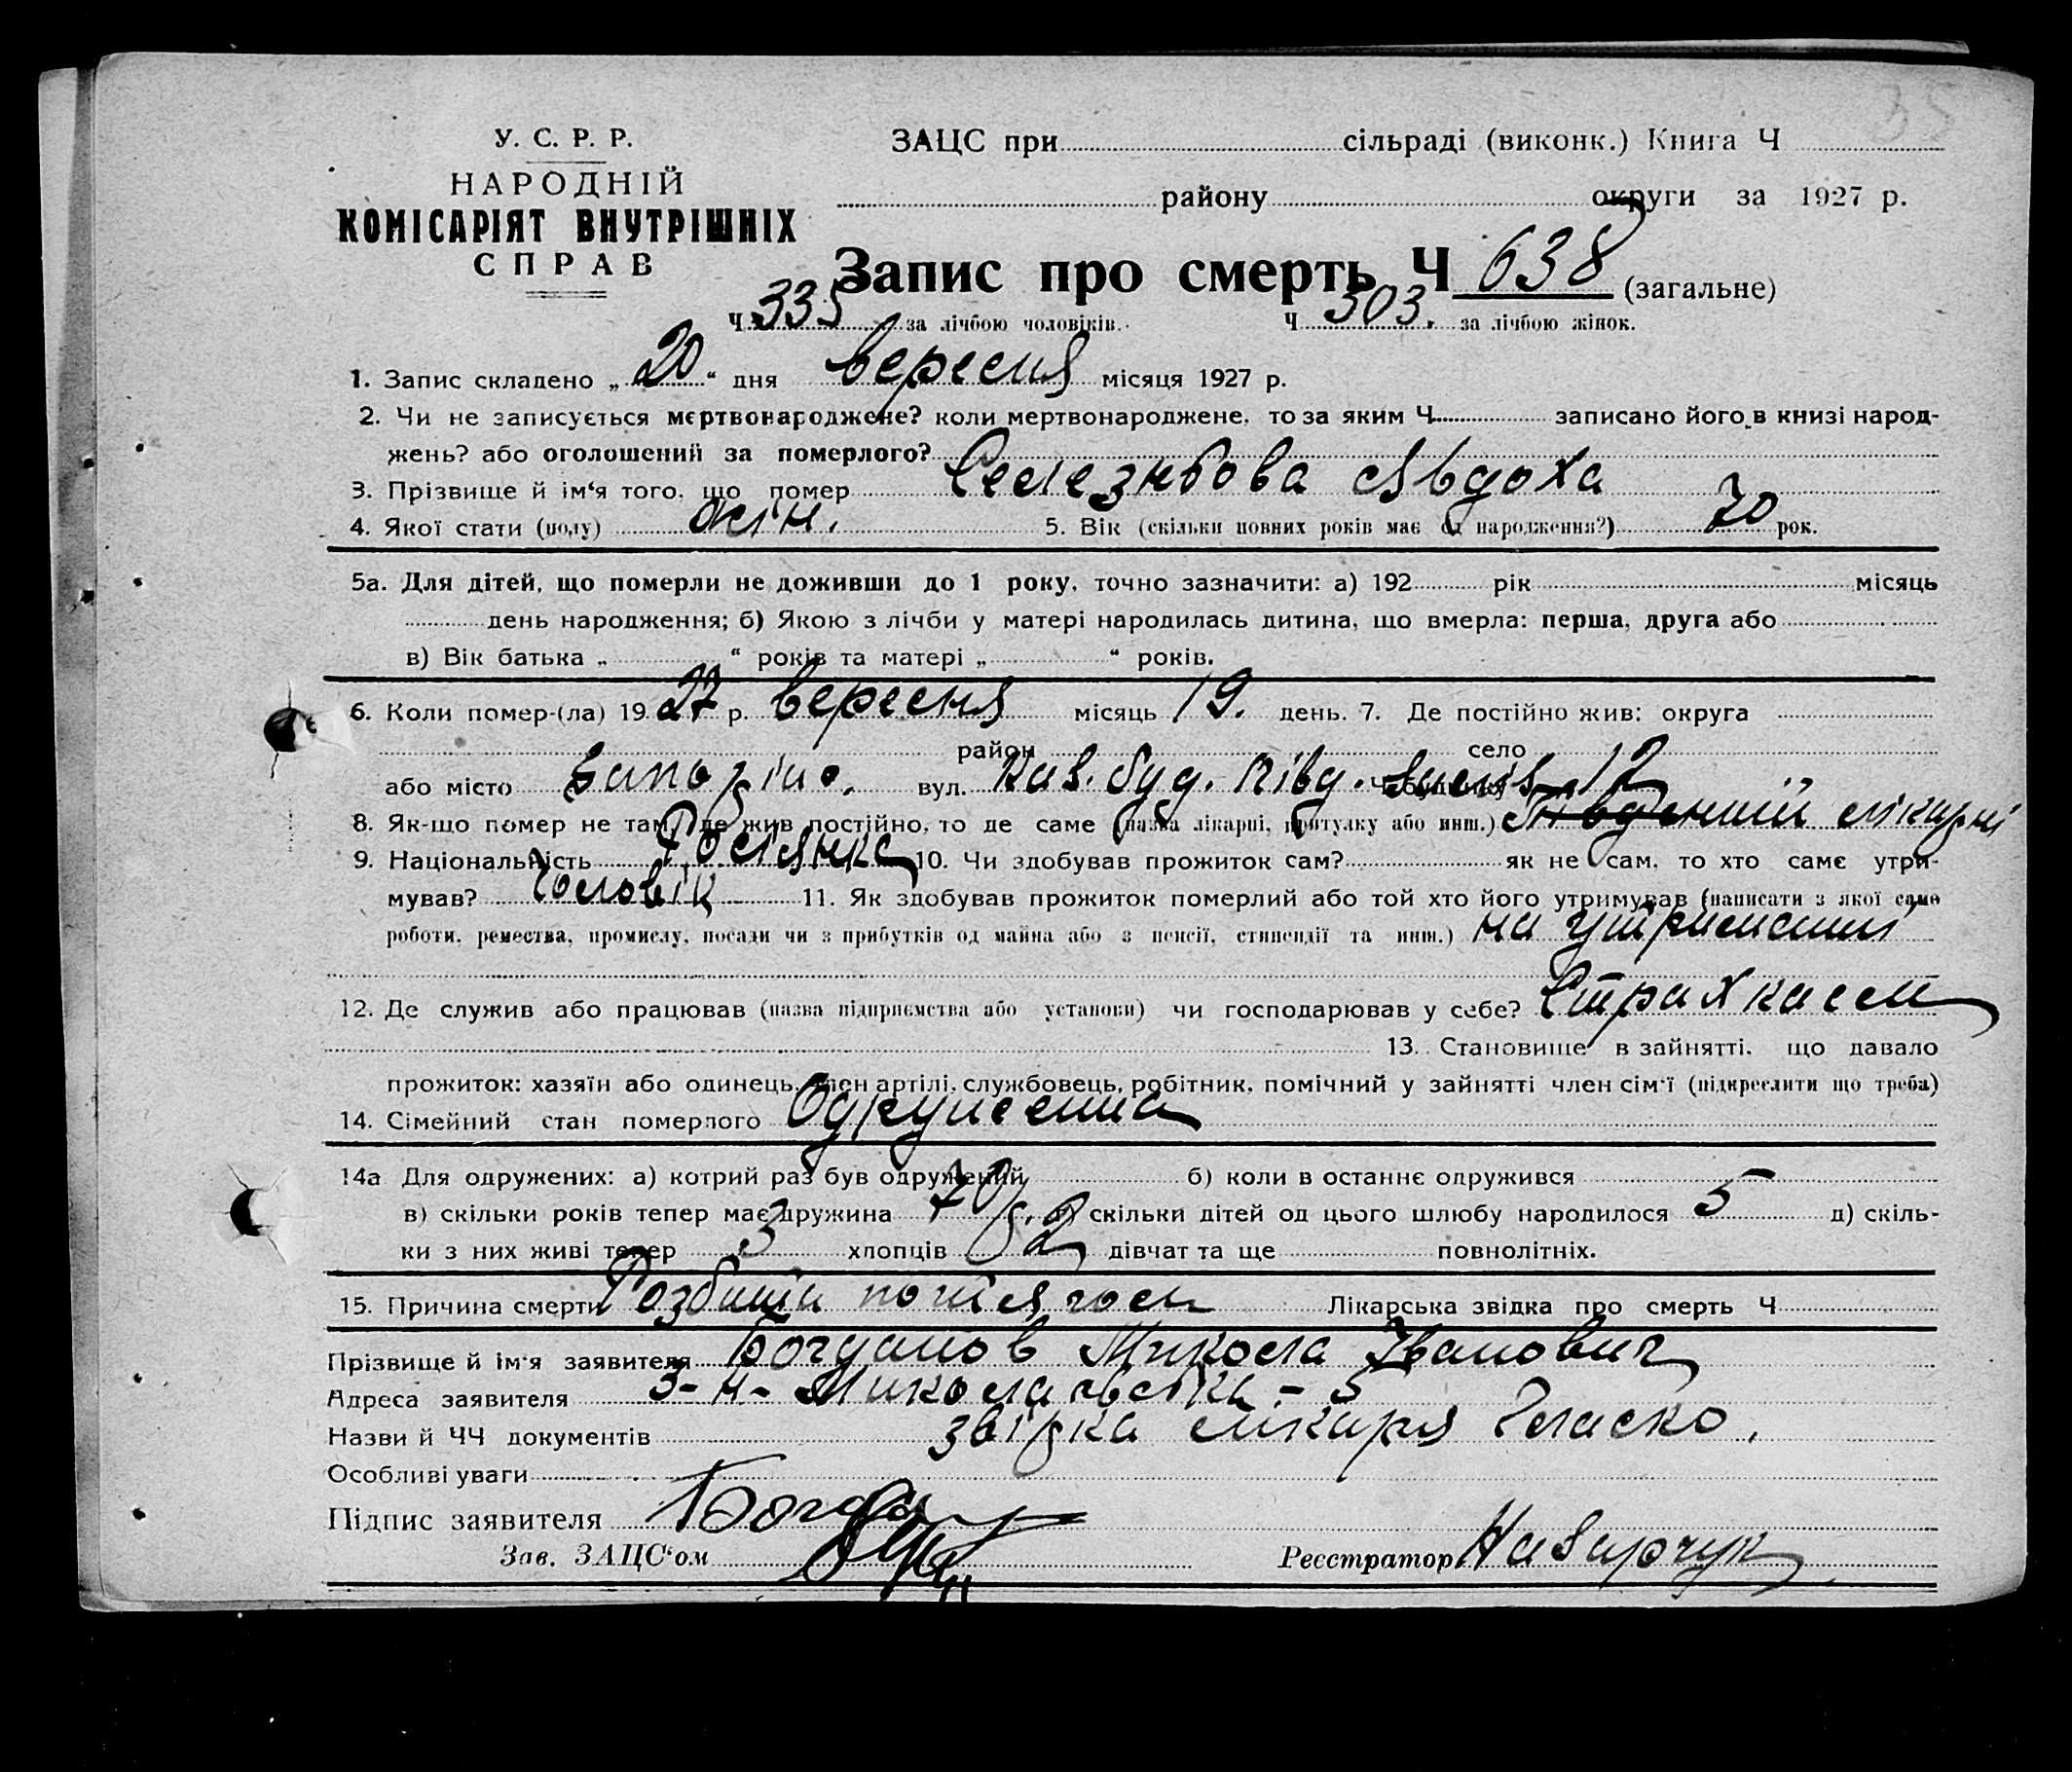 35
У. С. Р. Р.
НАРОДНІЙ
КОМІСАРІЯТ ВНУТРІШНІХ
СПРАВ
ЗАЦС при сільраді (виконк.) Книга Ч
району округи за 1927 р.
Запис про смерть Ч 638 (загальне)
Ч 335 за лічбою чоловіків. Ч 303. за лічбою жінок.
1. Запис складено „20“ дня вересня місяця 1927 р.
2. Чи не записується мертвонароджене? коли мертвонароджене, то за яким Ч записано його в книзі народ-
жень? або оголошений за померлого?
3. Прізвище й ім‘я того, що помер Селезнєова Явдоха
4. Якої стати (полу) жін. 5. Вік (скільки повних років має од народження?) 70 рок.
5а. Для дітей, що померли не доживши до 1 року, точно зазначити: а) 192 рік місяць
день народження; б) Якою з лічби у матері народилась дитина, що вмерла: перша, друга або
в) Вік батька „ “ років та матері „ “ років.
6. Коли помер-(ла) 19 27 р. вересня місяць 19. день. 7. Де постійно жив: округа
район село
або місто Запоріжж. вул. Каз. буд. Півд. Ч будинку 12
8. Як-що помер не там, де жив постійно, то де саме (назва лікарні, притулку або инш.) Південній лікарні
9. Національність Росіянка 10. Чи здобував прожиток сам? як не сам, то хто саме утри-
мував? Чоловік 11. Як здобував прожиток померлий або той хто його утримував (написати з якої саме
роботи, ремества, промислу, посади чи з прибутків од майна або з пенсії, стипендії та инш.) на утриманні
12. Де служив або працював (назва підприємства або установи) чи господарював у себе? Страхкаси
13. Становище в зайнятті, що давало
прожиток: хазяїн або одинець, член артілі, службовець, робітник, помічний у зайнятті член сім‘ї (підкреслити що треба)
14. Сімейний стан померлого Одружена
14а Для одружених: а) котрий раз був одружений б) коли в останнє одружився
в) скільки років тепер має дружина 70 р. г) скільки дітей од цього шлюбу народилося 5 д) скіль-
ки з них живі тепер 3 хлопців 2 дівчат та ще повнолітніх.
15. Причина смерти Розбита потягом Лікарська звідка про смерть Ч
Прізвище й ім‘я заявителя Богданов Микола Іванович
Адреса заявителя З-Н- Миколаївська - 5
Назви й ЧЧ документів звідка лікаря Гласко.
Особливі уваги
Підпис заявителя Богда
Зав. ЗАЦС“ом Реєстратор Назарчук